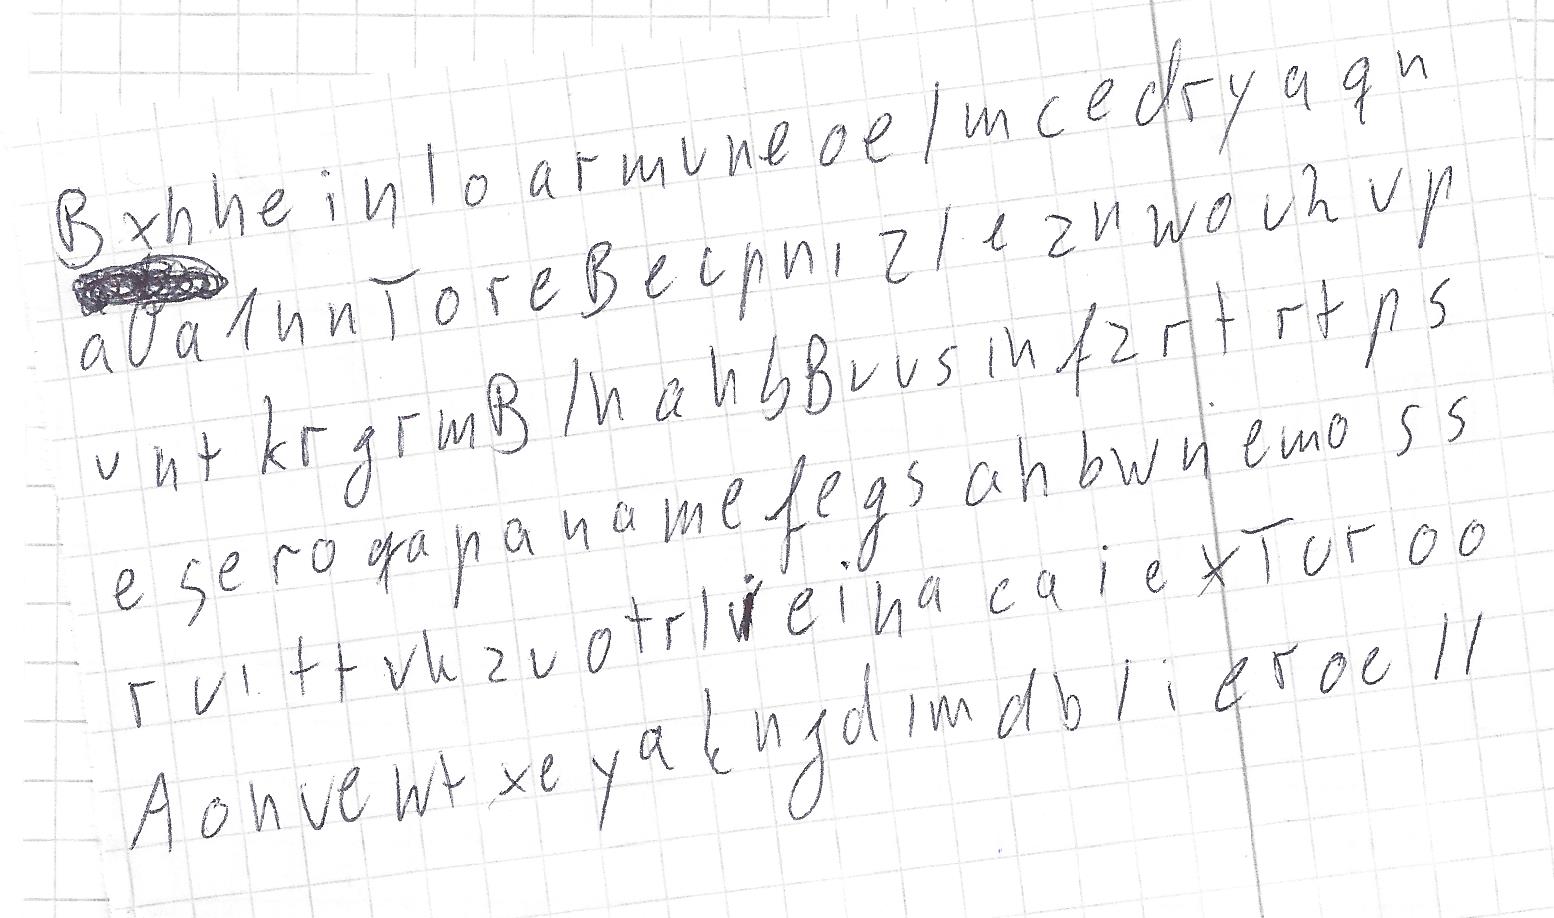 Bxhheinlo armvneoe/mcedryaqn
a0a1nnToreBecpnizleznwovhvp
vnt krgrmB/nahbBvvsinfzrtrtps
eseroqapanamefegsahbwnemoss
rvittvhzvotrlieinacaiexTuroo
Aonvewtxeyakngdimdblieroell